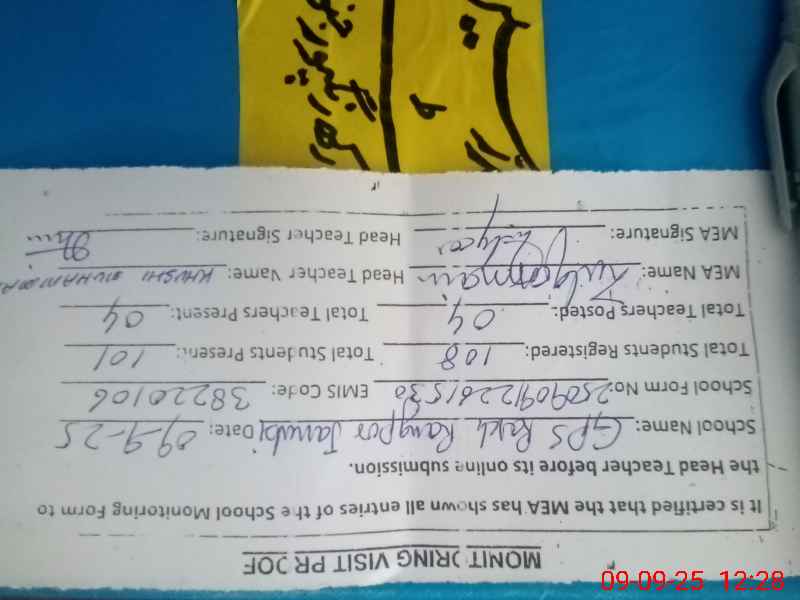 MONITORING VISIT PROOF
It is certified that the MEA has shown all entries of the School Monitoring Form to
the Head Teacher before its online submission.
School Name: GPS Rakh Rangpor Janubi Date: 09-9-25
School Form No: 25090912261530 EMIS Code: 38220106
Total Students Registered: 108 Total Students Present: 101
Total Teachers Posted: 04 Total Teachers Present: 04
MEA Name: Head Teacher Name: KHUSHI MUHAMMA
MEA Signature: Head Teacher Signature:
09-09-25 12:28